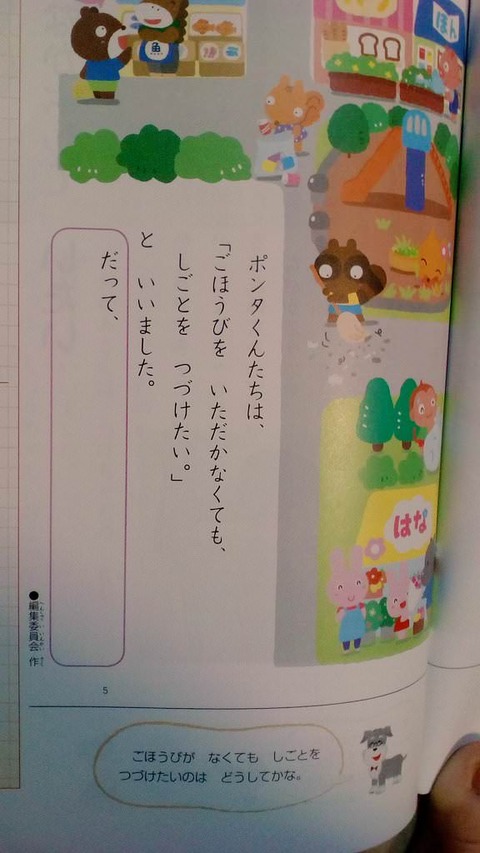 ほん
魚
はな
ポンタくんたちは、
「ごほうびを いただかなくても、
しごとを つづけたい。」
と いいました。
だって、
●編集委員会 作
5
ごほうびが なくても しごとを
つづけたいのは どうしてかな。